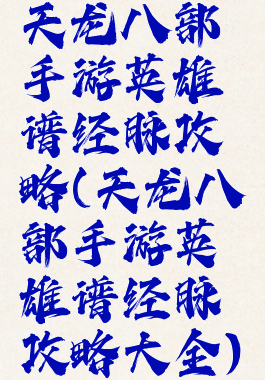 天龙八部
手游英雄
谱经脉攻
略(天龙八
部手游英
雄谱经脉
攻略大全)